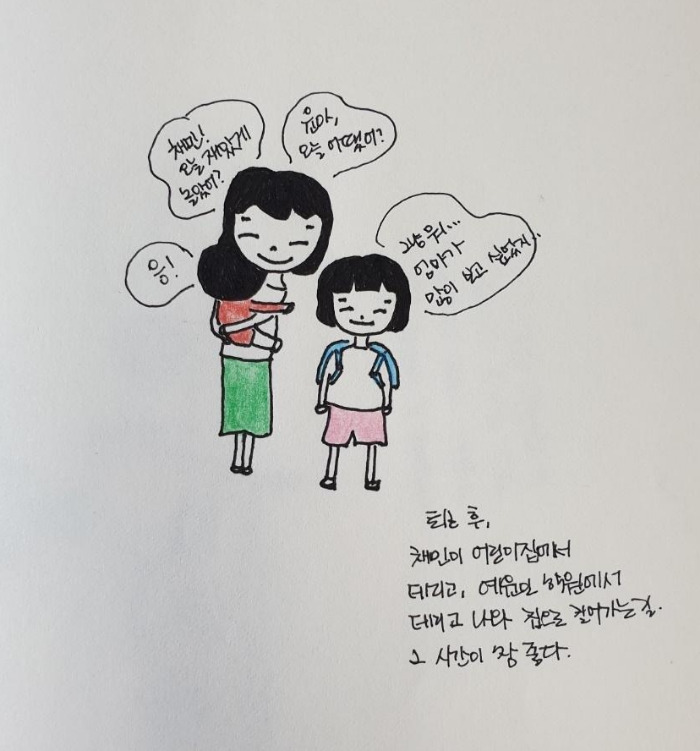 채민!
오늘 재밌게
놀았어?
유나,
오늘 어땠어?
응!
그냥 뭐...
엄마가
많이 보고 싶었지..
퇴근 후,
채민이 어린이집에서
데리고, 학원에서
데리고 나와 집으로 걸어가는 길.
그 시간이 참 좋다.